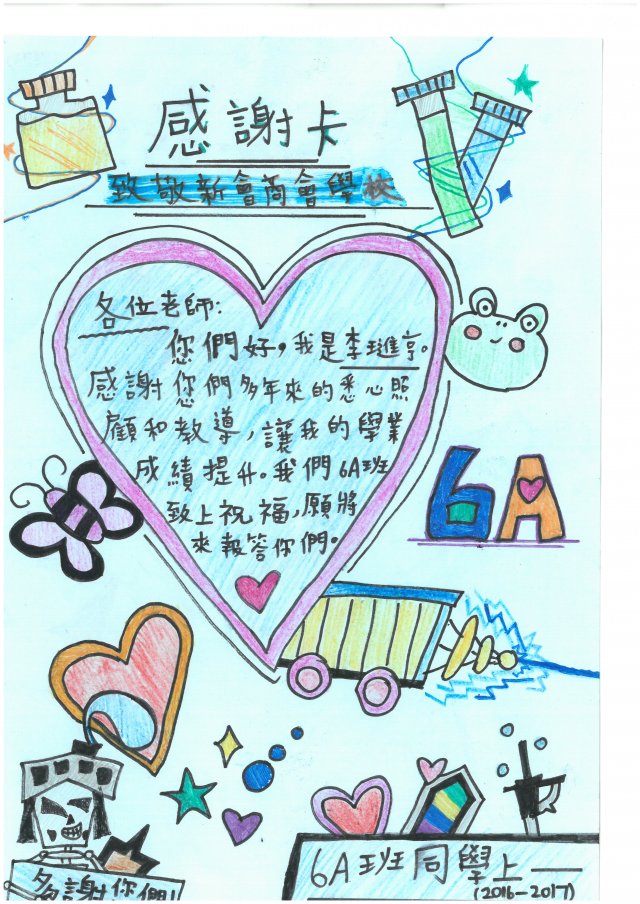 感謝卡
致敬新會商會學校
各位老師：
您們好，我是李璡亨。
感謝您們多年來的悉心照
顧和教導，讓我的學業
成績提升。我們6A班
致上祝福，願將
來報答你們。
6A
多謝你們！
6A班同學上
(2016-2017)